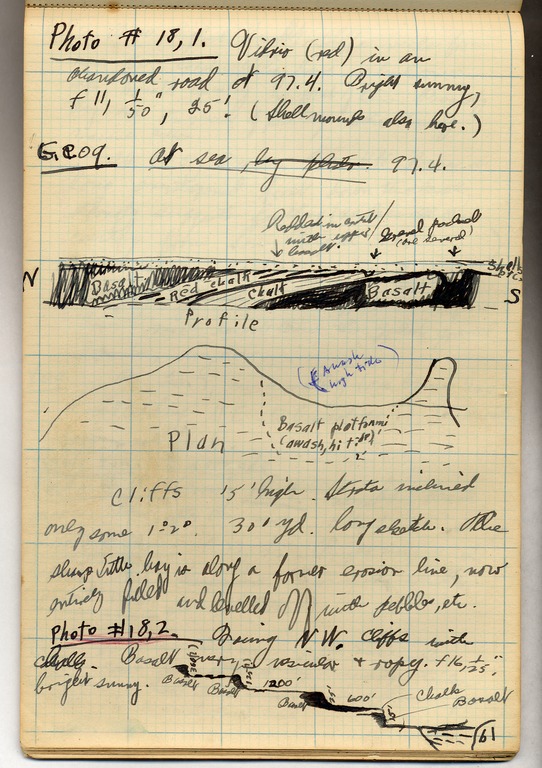 Photo # 18, 1. (red) in an
abandoned road at 97.4. Bright sunny,
f 11, 1/50", 25'. (Shell mounds also here.)
Geog. At sea by photo. 97.4.
Redded in
under upper
basalt.
Several
(one several)
Shells
etc.
N
Basalt
Red chalk
Chalk
Basalt
S
Profile
(Awash
high tide)
Plan
Basalt platform
(awash, hi t.)
Cliffs 15' high. Strata inclined
only some 1° 2°. 30 yd. long sketch. The
sharp little bay is along a former erosion line, now
entirely filled and levelled with pebbles, etc.
Photo #18,2. Facing N.W. Cliffs with
chalk. Basalt very vesicular + ropy. f 16, 1/25",
bright sunny.
Basalt
Basalt
1200'
Basalt
600'
Chalk
Basalt
61